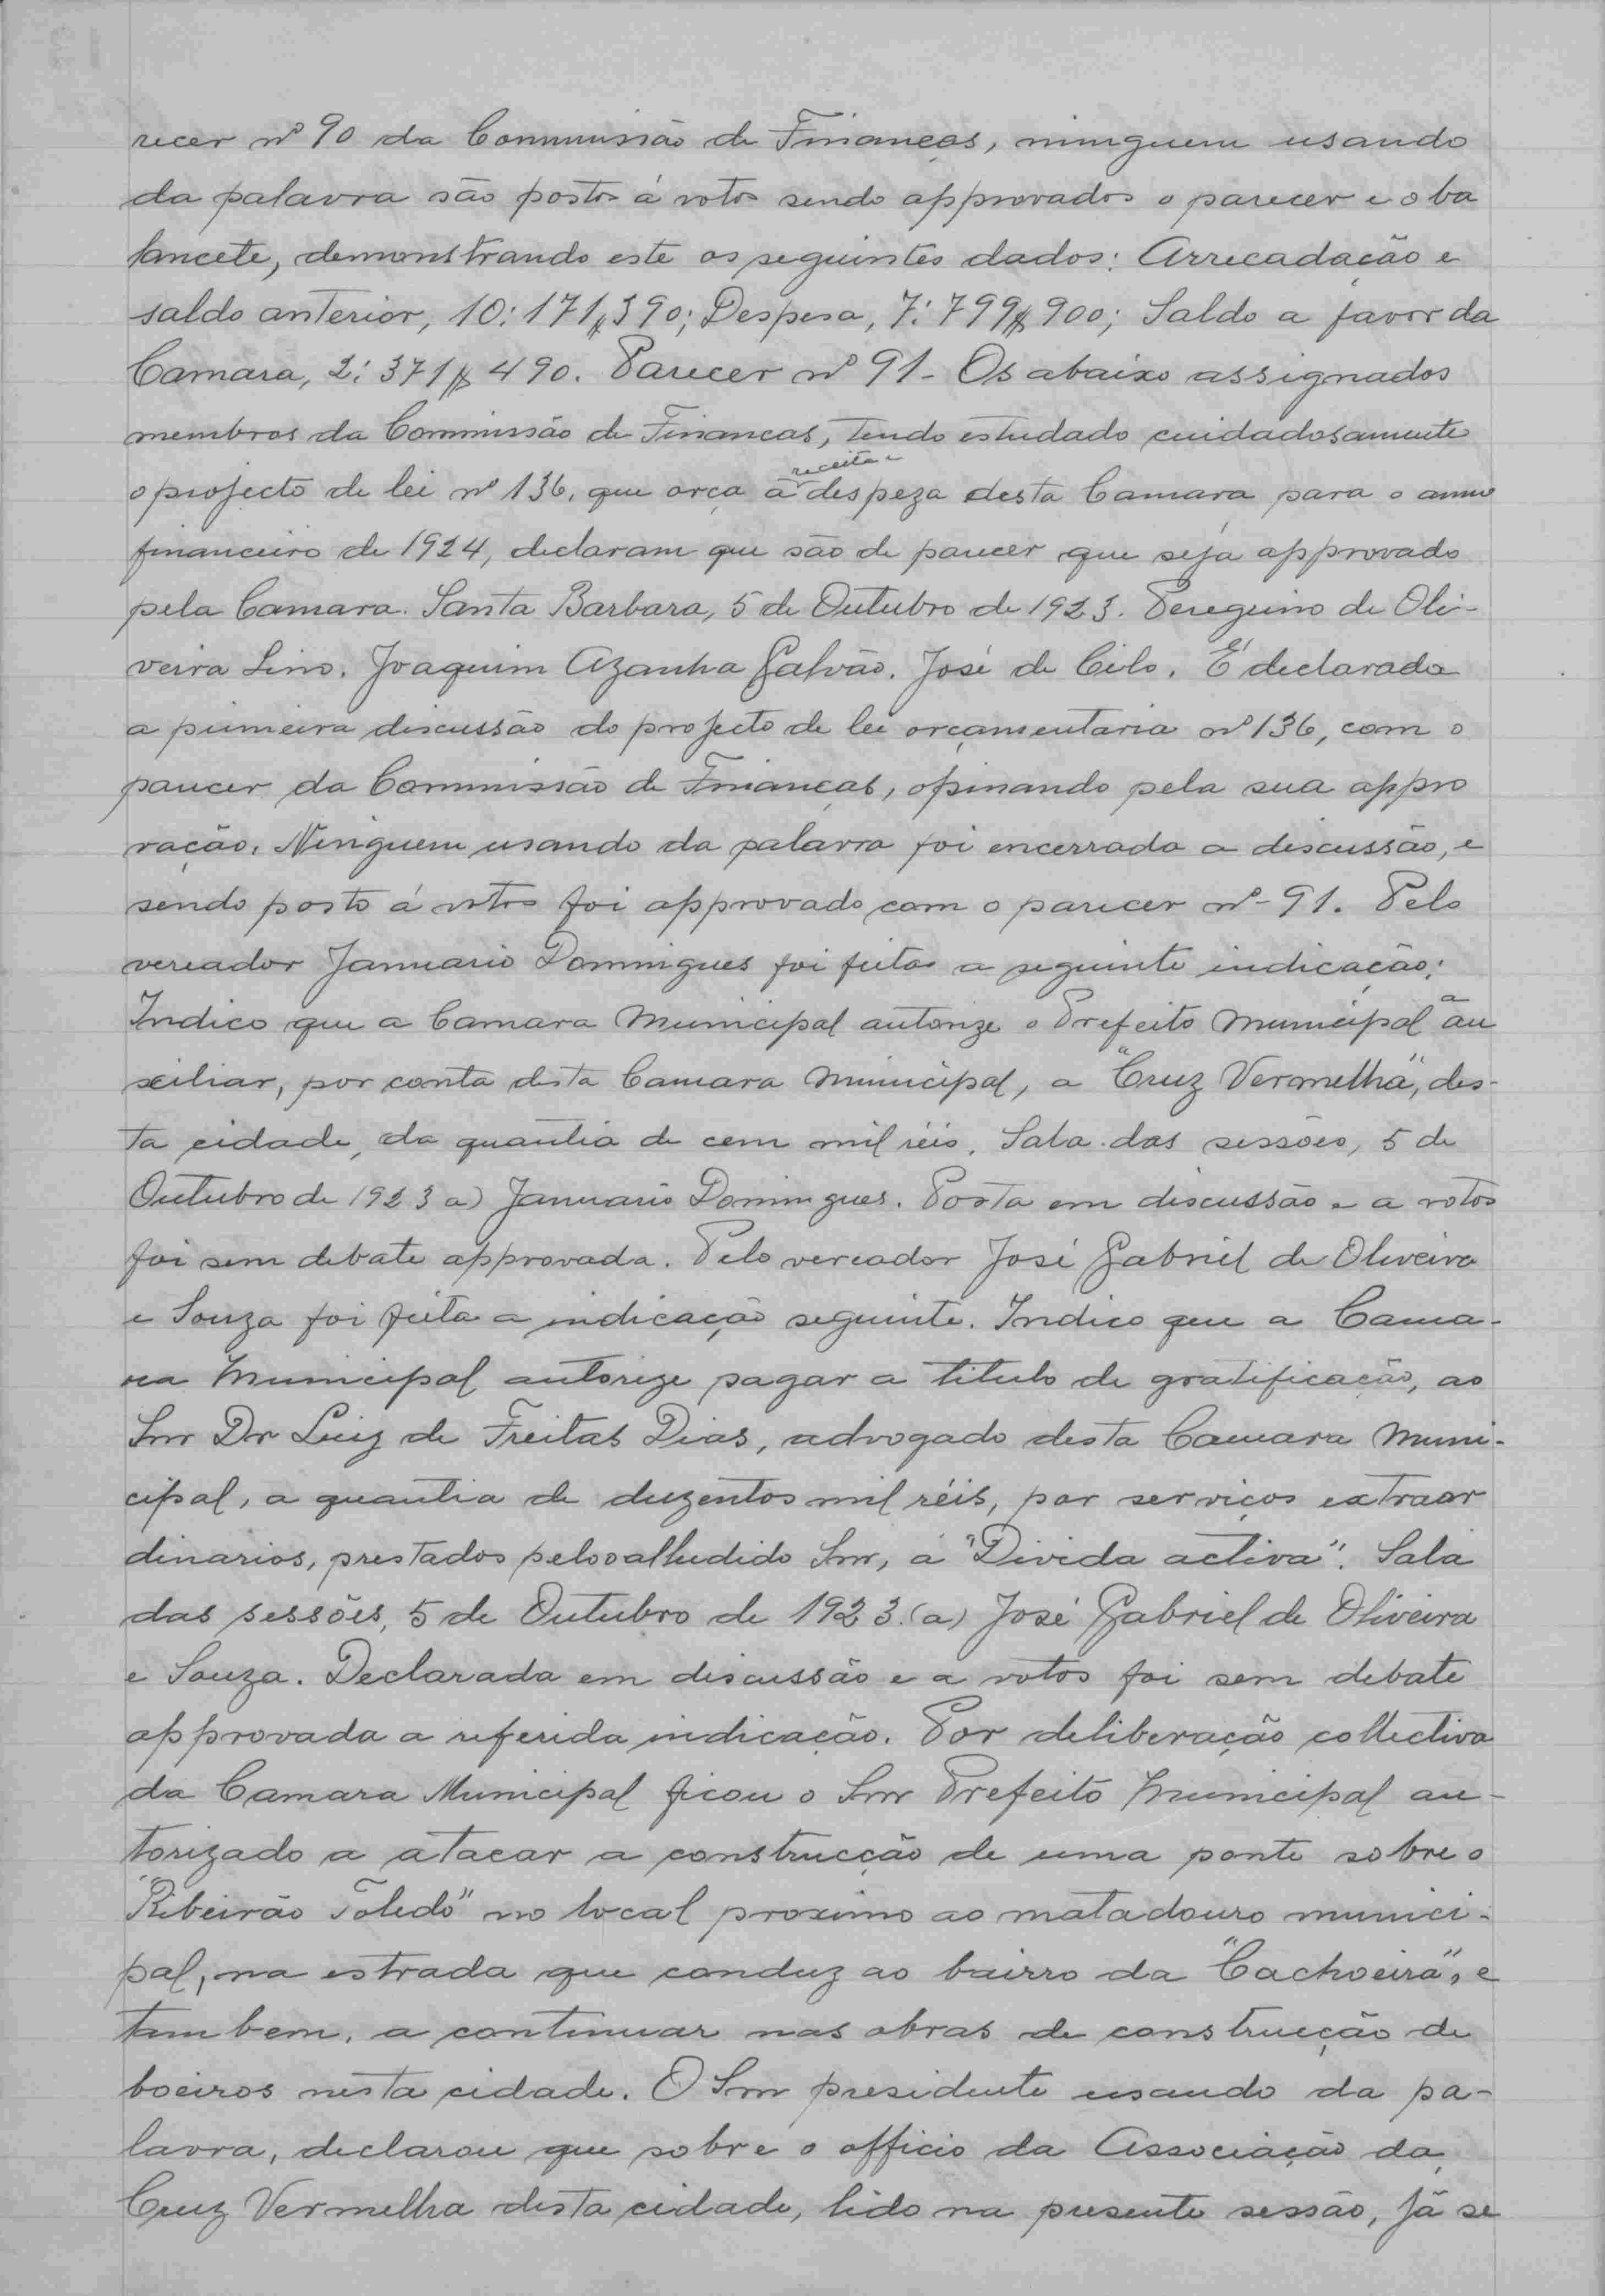 recer nº 90 da Commissão de Finanças, ninguem usando
da palavra são postos á votos sendo approvados o parecer e o ba
lancete, demonstrando este os seguintes dados: Arrecadação e
saldo anterior, 10:171$390; Despesa, 7:799$900; Saldo a favor da
Camara, 2:371$490. Parecer nº 91 - Os abaixo assignados
membros da Commissão de Financas, tendo estudado cuidadosamente
o projecto de lei nº 136, que orça a receita e despeza desta Camara para o anno
financeiro de 1924, declaram que são de parecer que seja approvado
pela Camara. Santa Barbara, 5 de Outubro de 1923. Pereguino de Oli-
veira Lino. Joaquim Azanha Galvão. José de Cilo. É declarada
a primeira discussão do projecto de lei orçamentaria nº 136, com o
parecer da Commissão de Finanças, opinando pela sua appro
vação. Ninguem usando da palavra foi encerrada a discussão, e
sendo posto á votos foi approvado com o parecer nº- 91. Pelo
vereador Januario Domingues foi feita a seguinte indicação:
Indico que a Camara Municipal autorize o Prefeito Municipal a au
xiliar, por conta desta Camara Municipal, a "Cruz Vermelha", des-
ta cidade, da quantia de cem mil réis. Sala das sessões, 5 de
Outubro de 1923 a) Januario Domingues. Posta em discussão e a votos
foi sem debate approvada. Pelo vereador José Gabriel de Oliveira
e Souza foi feita a indicação seguinte. Indico que a Cama-
ra Municipal autorize pagar a titulo de gratificação, ao
Snr Dr Luiz de Freitas Dias, advogado desta Camara Muni-
cipal, a quantia de duzentos mil réis, por serviços extraor
dinarios, prestados pelo alludido Snr, á "Divida activa". Sala
das sessões, 5 de Outubro de 1923. (a) José Gabriel de Oliveira
e Souza. Declarada em discussão e a votos foi sem debate
approvada a referida indicação. Por deliberação collectiva
da Camara Municipal ficou o Snr Prefeito Municipal au-
torizado a atacar a construcção de uma ponte sobre o
"Ribeirão Toledo" no local proximo ao matadouro munici-
pal, na estrada que conduz ao bairro da "Cachoeira", e
tambem, a continuar nas obras de construcção de
boeiros nesta cidade. O Snr presidente usando da pa-
lavra, declarou que sobre o officio da Associação da
Cruz Vermelha desta cidade, lido na presente sessão, já se